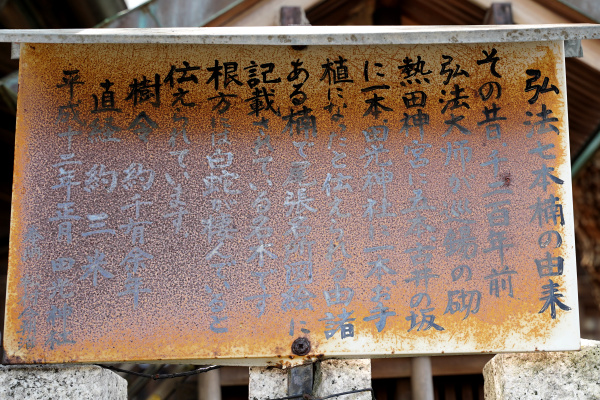 弘法七本楠の由来
その昔千二百年前
弘法大師が 熱の砌
熱田神宮に 本 井の坂
に一本田光神社に一本お手
植になったと伝えられる由諸
ある楠で尾張名所図絵に
記載されている名木です
根方には白蛇が棲んでいると
伝えられています
樹令 約千有余年
直径 約 三米
平成十二年五月 田光神社